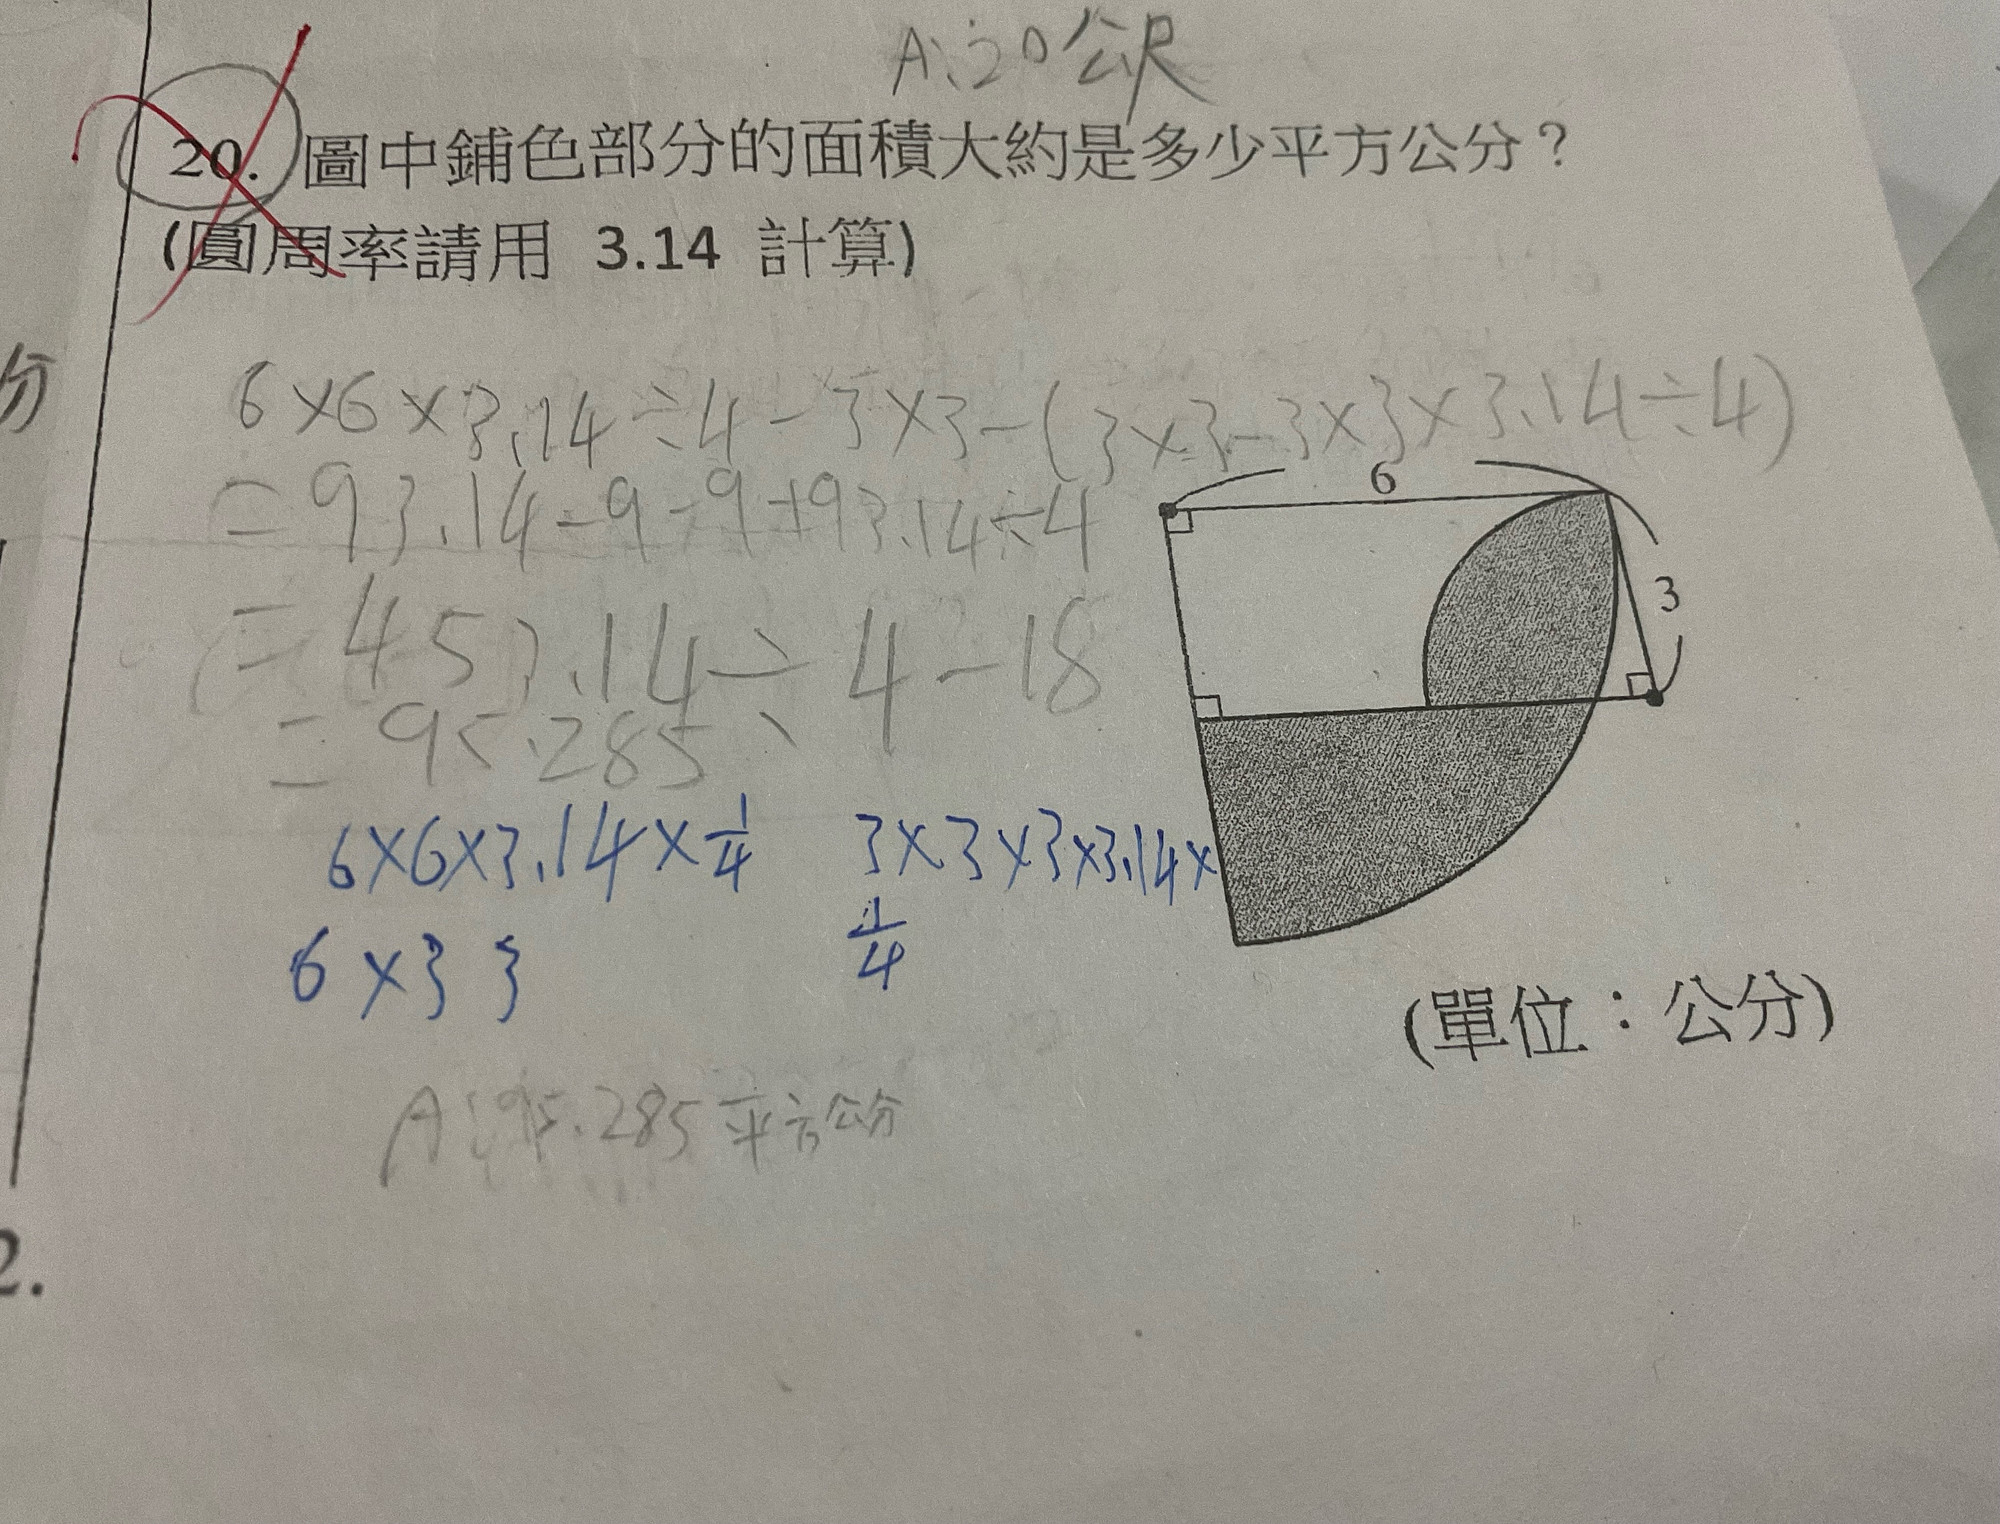 A:20公尺
20. 圖中鋪色部分的面積大約是多少平方公分？
(圓周率請用 3.14 計算)
分
6×6×3.14÷4-3×3-(3×3-3×3×3.14÷4)
=93.14-9-9+93.14÷4
6
=453.14÷4-18
3
=95.285
6×6×3.14×1/4
3×3×3×3.14×1/4
6×3 3
(單位：公分)
A:95.285平方公分
2.